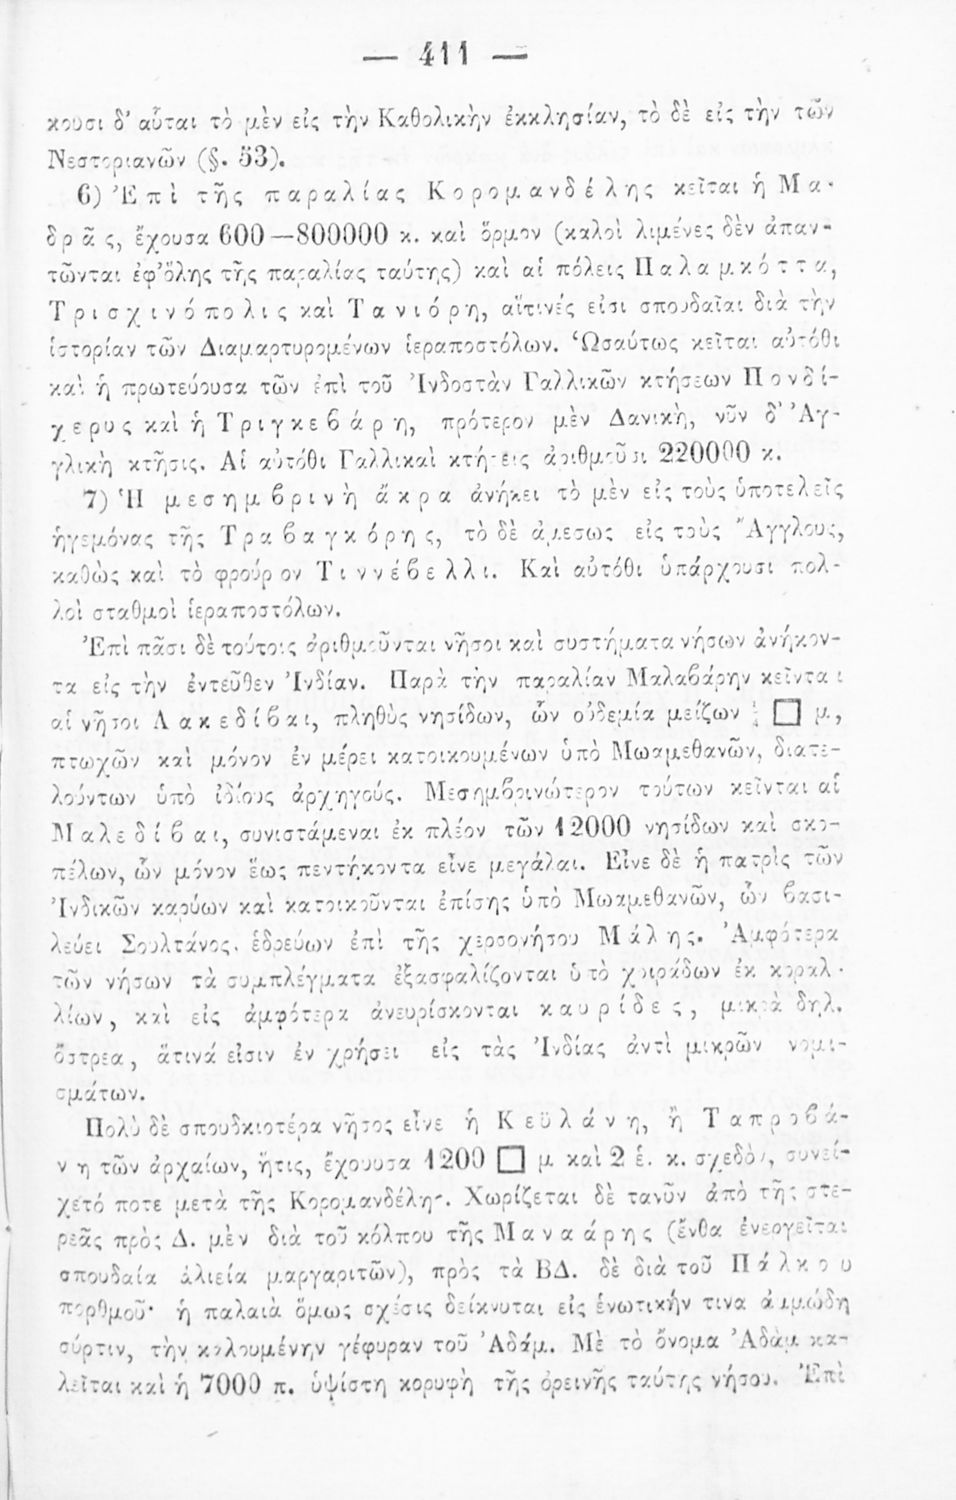 — 411 —
κουσι δ’ αὗται τὸ μὲν εἰς τὴν Καθολικὴν ἐκκλησίαν, τὸ δὲ εἰς τὴν τῶν
Νεστοριανῶν (§. 53).
6) Ἐπὶ τῆς παραλίας Κορομανδέλης κεῖται ἡ Μα-
δρᾶς, ἔχουσα 600—800000 κ. καὶ ὅρμον (καλοὶ λιμένες δὲν ἀπαν-
τῶνται ἐφ’ὅλης τῆς παραλίας ταύτης) καὶ αἱ πόλεις Παλαμκόττα,
Τρισχινόπολις καὶ Τανιόρη, αἵτινές εἰσι σπουδαῖαι διὰ τὴν
ἱστορίαν τῶν Διαμαρτυρομένων ἱεραποστόλων. Ὡσαύτως κεῖται αὐτόθι
καὶ ἡ πρωτεύουσα τῶν ἐπὶ τοῦ Ἰνδοστὰν Γαλλικῶν κτήσεων Πονδί-
χερυς καὶ ἡ Τριγκεβάρη, πρότερον μὲν Δανικὴ, νῦν δ’ Ἀγ-
γλικὴ κτῆσις. Αἱ αὐτόθι Γαλλικαὶ κτήσεις ἀριθμοῦσι 220000 κ.
7) Ἡ μεσημβρινὴ ἄκρα ἀνήκει τὸ μὲν εἰς τοὺς ὑποτελεῖς
ἡγεμόνας τῆς Τραβαγκόρης, τὸ δὲ ἀμεσως εἰς τοὺς Ἄγγλους,
καθὼς καὶ τὸ φρούριον Τιννέβελλι. Καὶ αὐτόθι ὑπάρχουσι πολ-
λοὶ σταθμοὶ ἱεραποστόλων.
Ἐπὶ πᾶσι δὲ τούτοις ἀριθμοῦνται νῆσοι καὶ συστήματα νήσων ἀνήκον-
τα εἰς τὴν ἐντεῦθεν Ἰνδίαν. Παρὰ τὴν παραλίαν Μαλαβάρην κεῖνται
αἱ νῆσοι Λακεδίβαι, πληθὺς νησίδων, ὧν οὐδεμία μείζων □ μ,
πτωχῶν καὶ μόνον ἐν μέρει κατοικουμένων ὑπὸ Μωαμεθανῶν, διατε-
λούντων ὑπὸ ἰδίους ἀρχηγούς. Μεσημβρινώτερον τούτων κεῖνται αἱ
Μαλεδίβαι, συνιστάμεναι ἐκ πλέον τῶν 12000 νησίδων καὶ σκο-
πέλων, ὧν μόνον ἕως πεντήκοντα εἶνε μεγάλαι. Εἶνε δὲ ἡ πατρὶς τῶν
Ἰνδικῶν καρύων καὶ κατοικοῦνται ἐπίσης ὑπὸ Μωαμεθανῶν, ὧν βασι-
λεύει Σουλτάνος, ἑδρεύων ἐπὶ τῆς χερσονήσου Μάλης. Ἀμφότερα
τῶν νήσων τὰ συμπλέγματα ἐξασφαλίζονται ὑπὸ χοιράδων ἐκ κοραλ-
λίων, καὶ εἰς ἀμφότερα ἀνευρίσκονται καυρίδες, μικρὰ δηλ.
ὄστρεα, ἅτινά εἰσιν ἐν χρήσει εἰς τὰς Ἰνδίας ἀντὶ μικρῶν νομι-
σμάτων.
Πολὺ δὲ σπουδαιοτέρα νῆσος εἶνε ἡ Κεϋλάνη, ἢ Ταπροβά-
νη τῶν ἀρχαίων, ἥτις, ἔχουσα 1200 □ μ καὶ 2 ἑ. κ. σχεδὸν, συνεί-
χετό ποτε μετὰ τῆς Κορομανδέλης. Χωρίζεται δὲ τανῦν ἀπὸ τῆς στε-
ρεᾶς πρὸς Δ. μὲν διὰ τοῦ κόλπου τῆς Μαναάρης (ἔνθα ἐνεργεῖται
σπουδαία ἁλιεία μαργαριτῶν), πρὸς τὰ ΒΔ. δὲ διὰ τοῦ Πάλκου
πορθμοῦ· ἡ παλαιὰ ὅμως σχέσις δείκνυται εἰς ἑνωτικήν τινα ἀμμώδη
σύρτιν, τὴν καλουμένην γέφυραν τοῦ Ἀδάμ. Μὲ τὸ ὄνομα Ἀδὰμ κα-
λεῖται καὶ ἡ 7000 π. ὑψίστη κορυφὴ τῆς ὀρεινῆς ταύτης νήσου. Ἐπὶ